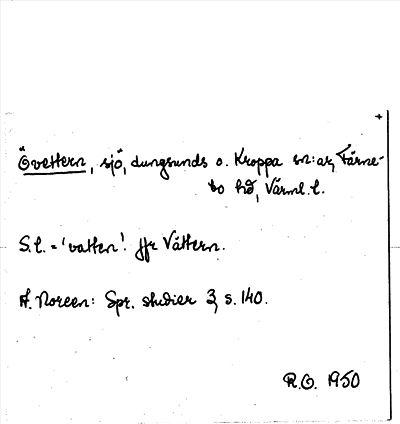 +
Övettern, sjö, Lungsunds o. Kroppa sn:ar, Färne-
bo hd, Värml. l.
S.l. = 'vatten'. Jfr Vättern.
A. Noreen: Spr. studier 3, s. 140.
R.O. 1950